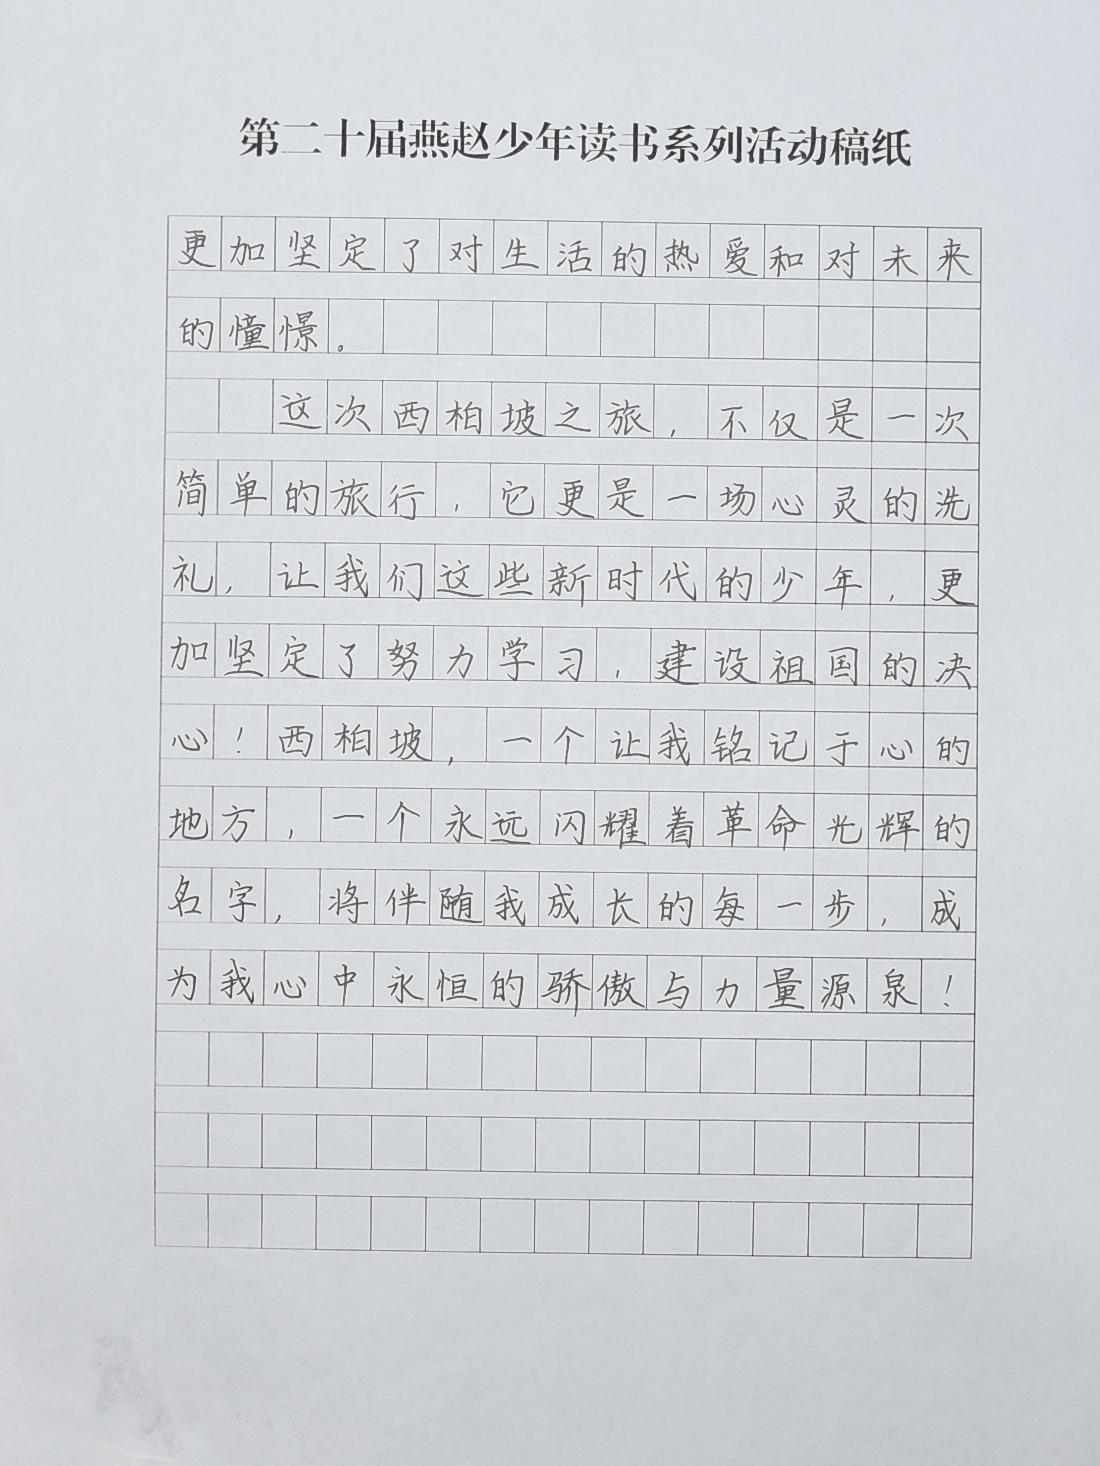 第二十届燕赵少年读书系列活动稿纸
更加坚定了对生活的热爱和对未来
的憧憬。
这次西柏坡之旅，不仅是一次
简单的旅行，它更是一场心灵的洗
礼，让我们这些新时代的少年，更
加坚定了努力学习，建设祖国的决
心！西柏坡，一个让我铭记于心的
地方，一个永远闪耀着革命光辉的
名字，将伴随我成长的每一步，成
为我心中永恒的骄傲与力量源泉！